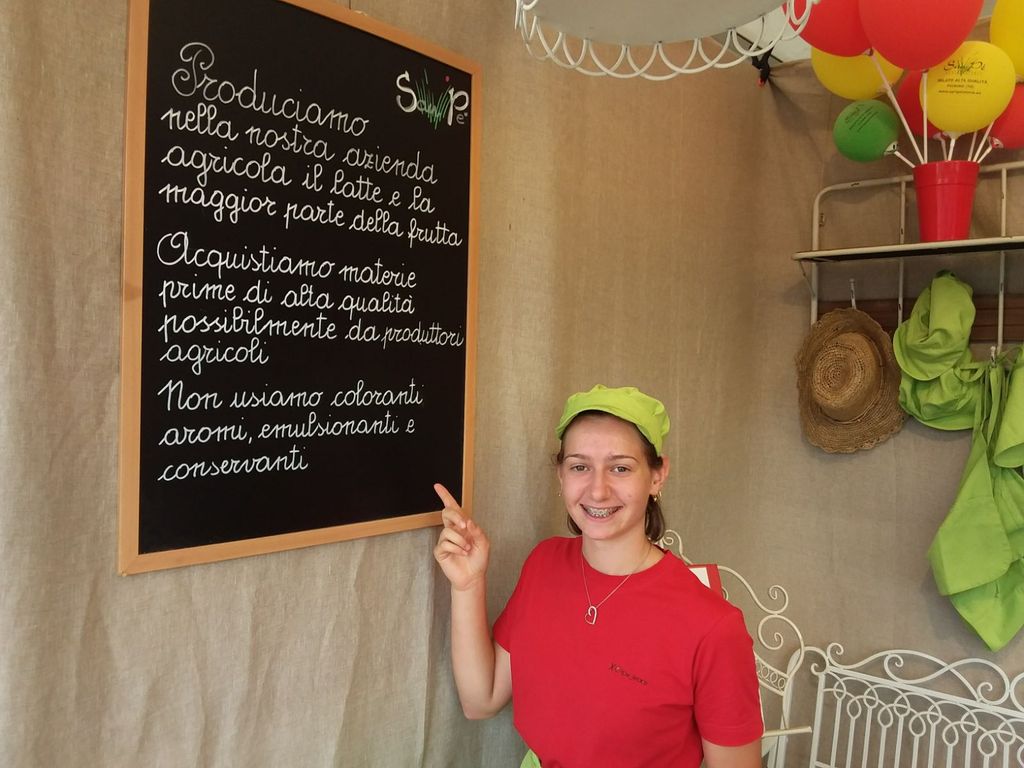 Produciamo
nella nostra azienda
agricola il latte e la
maggior parte della frutta
Acquistiamo materie
prime di alta qualità
possibilmente da produttori
agricoli
Non usiamo coloranti
aromi, emulsionanti e
conservanti
GELATO ALTA QUALITÀ